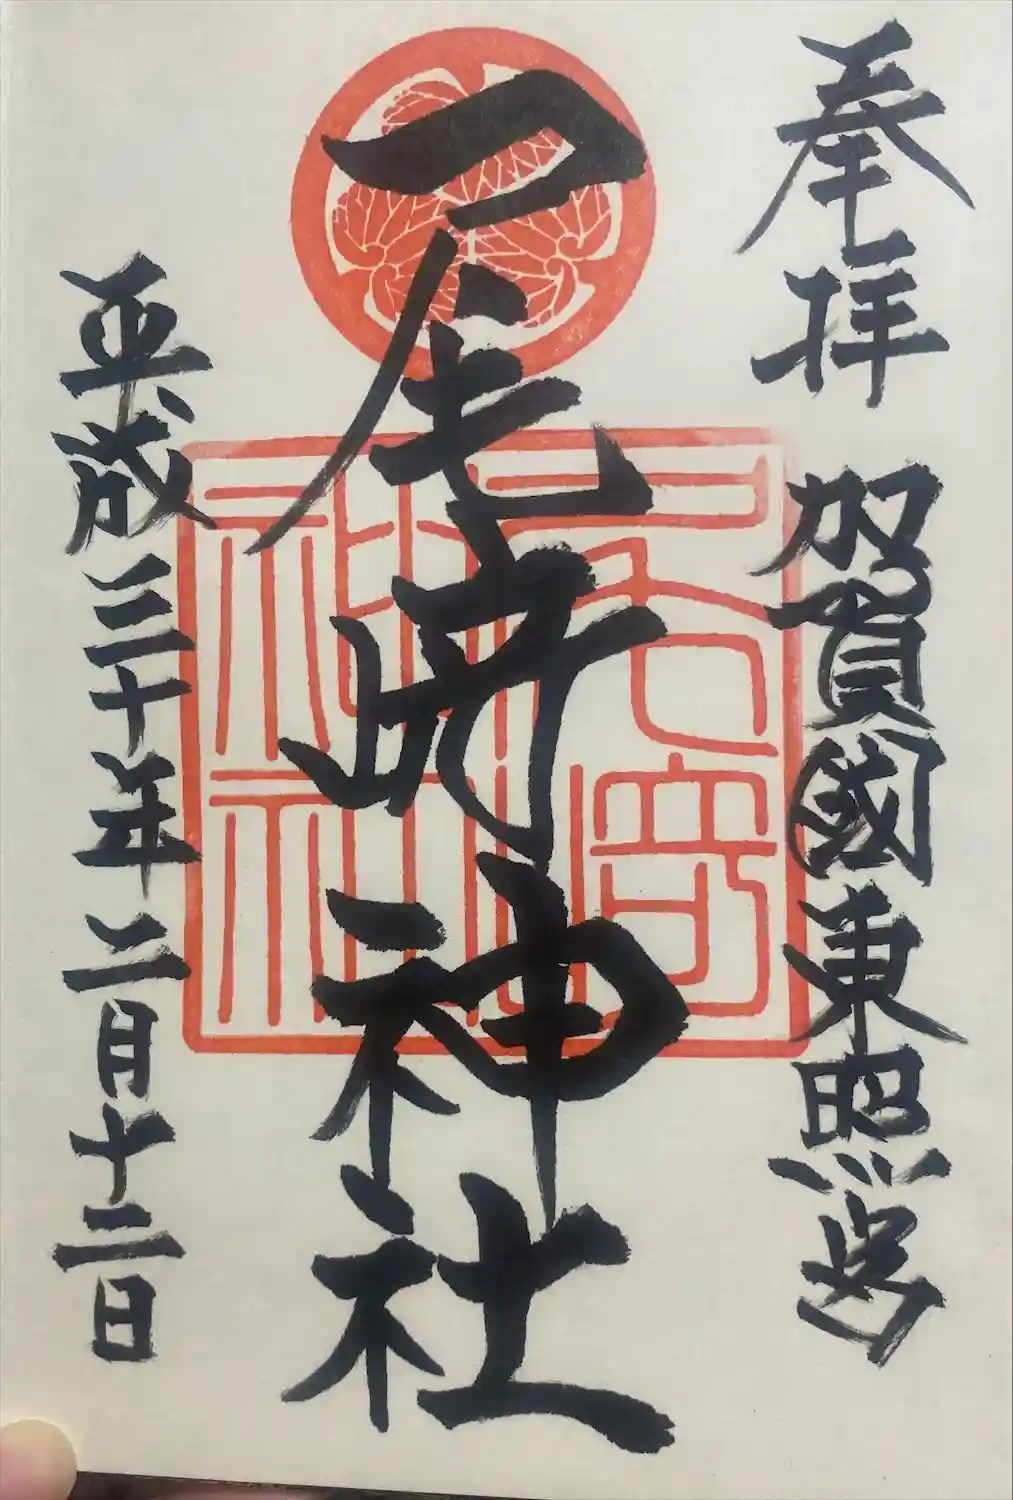 奉拝 加賀國東照宮
尾崎神社
平成三十年二月十二日
尾崎
神社